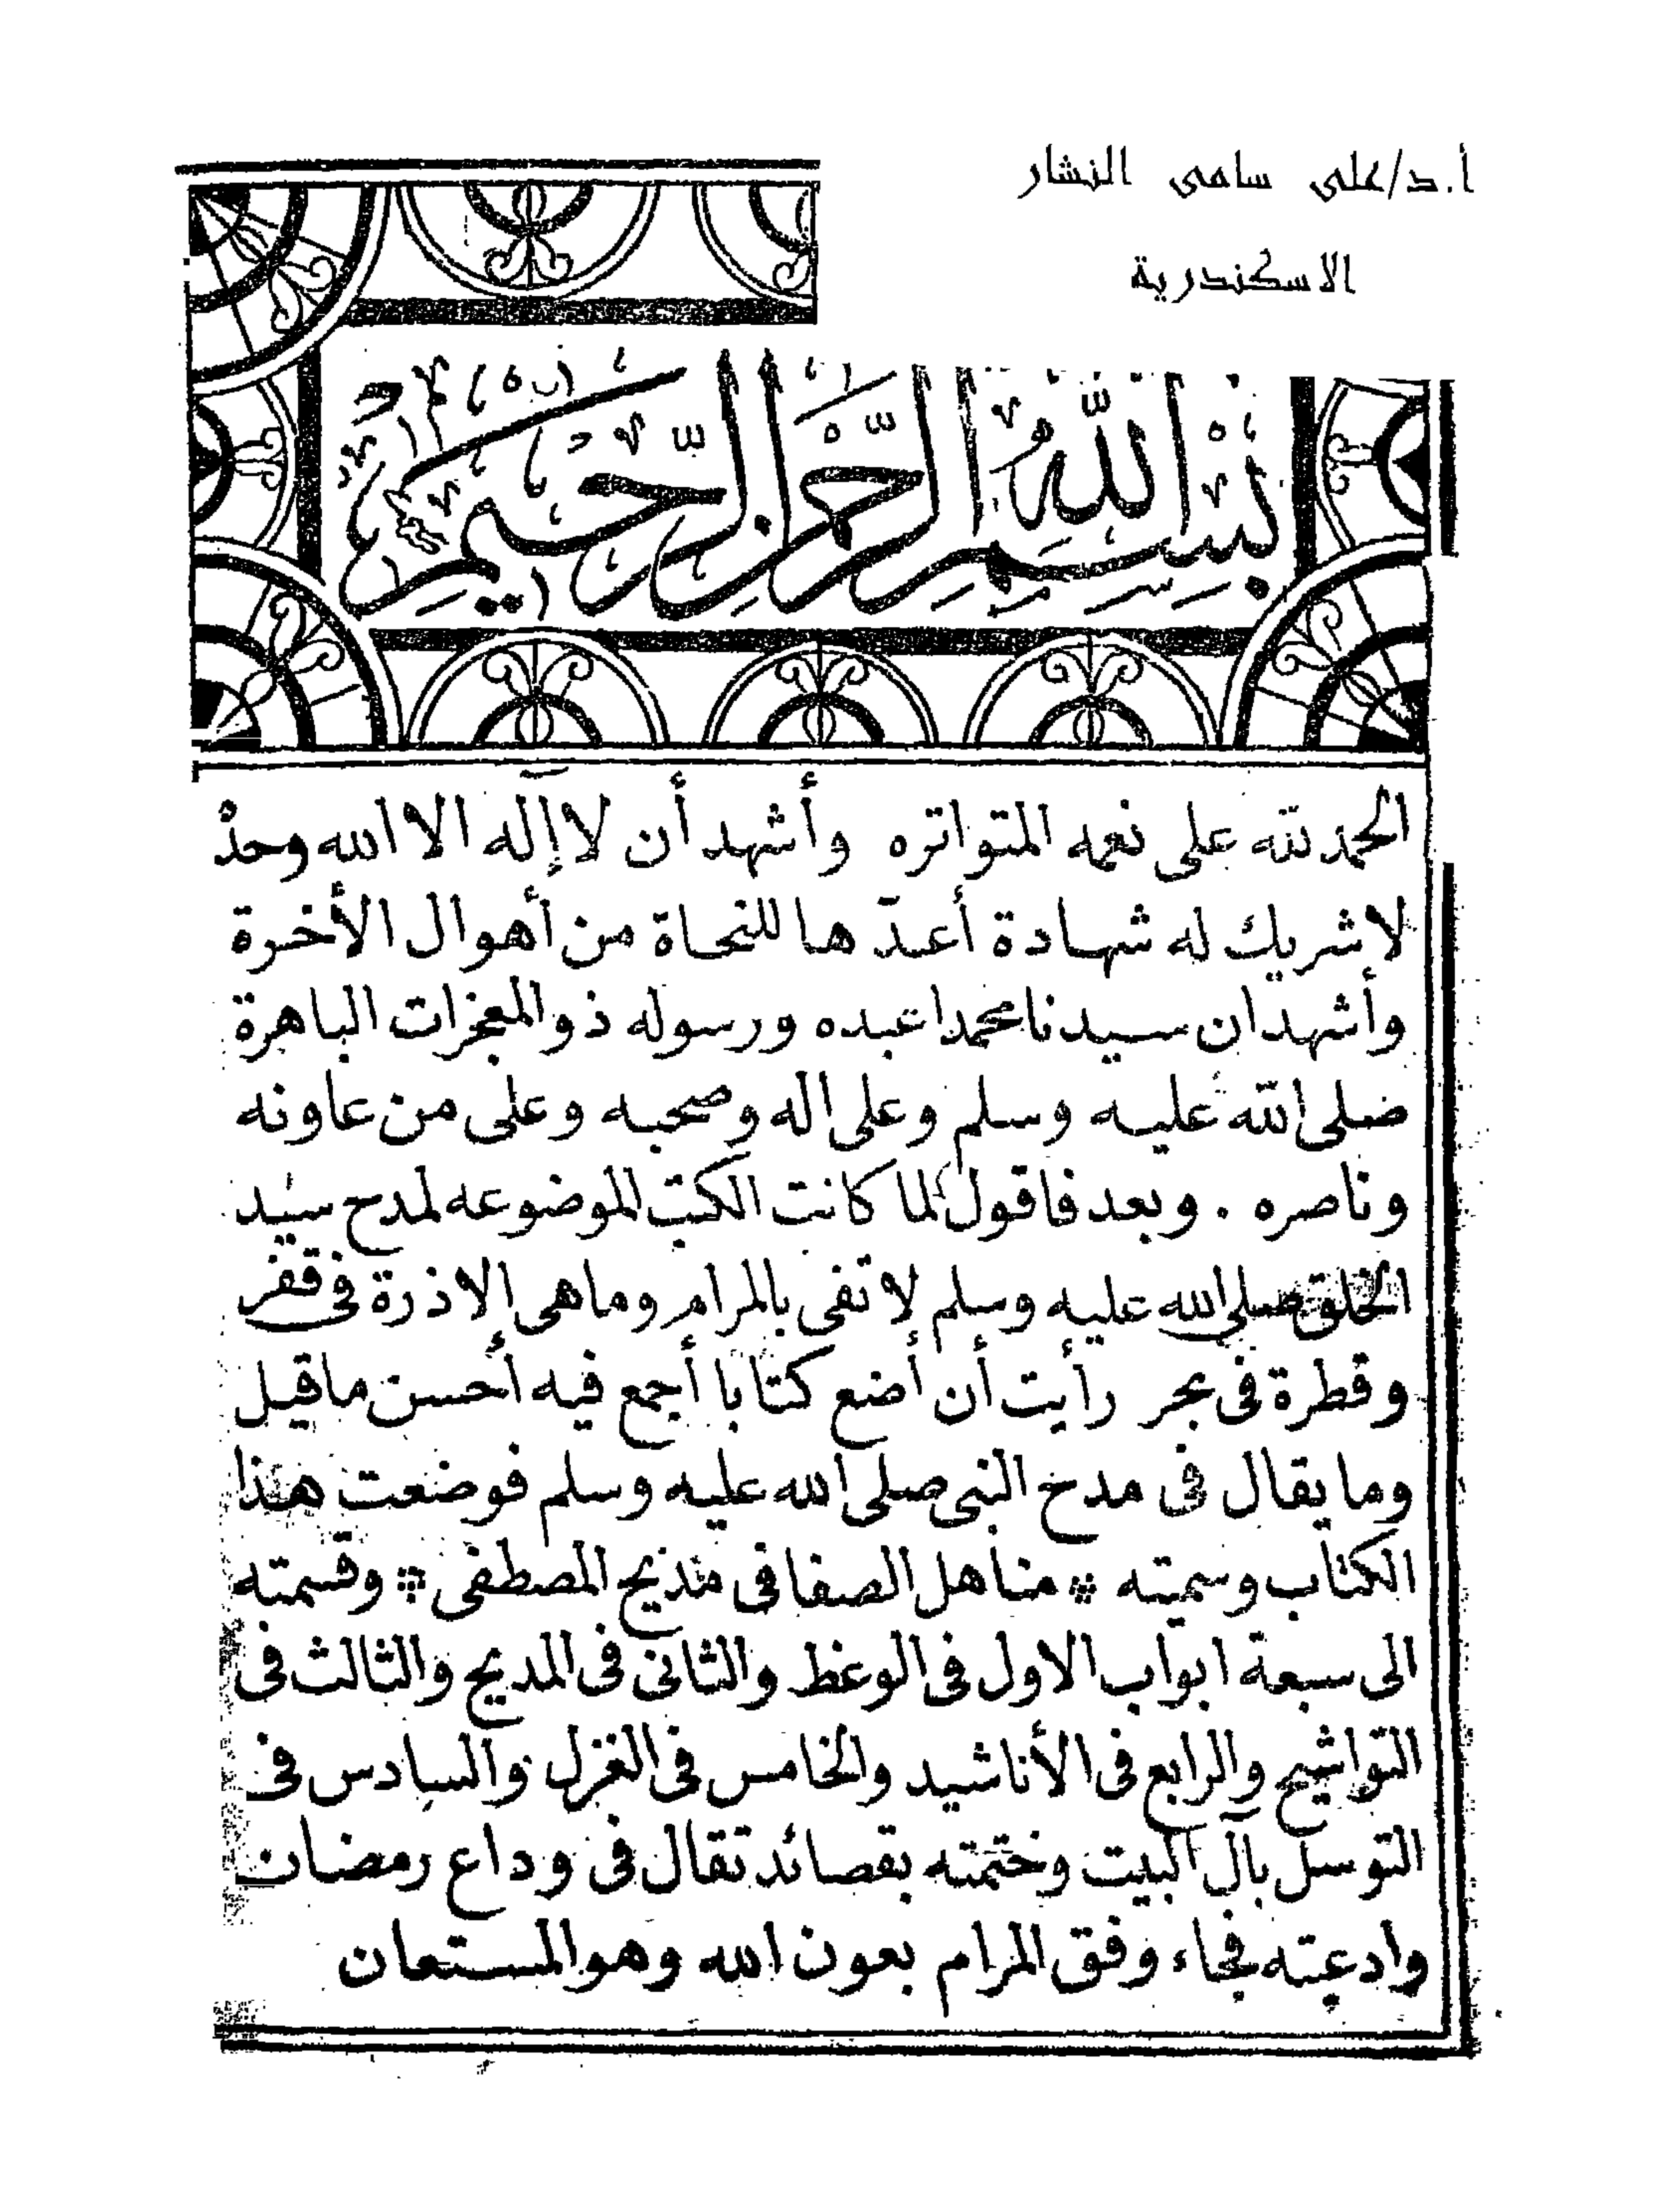 أ.د/على سامى النشار
الاسكندرية
بسم الله الرحمن الرحيم
الحمد لله على نعمه المتواتره وأشهد أن لا إله الا الله وحده
لا شريك له شهادة أعدّها للنجاة من أهوال الأخرة
وأشهد ان سيدنا محمدا عبده ورسوله ذو المعجزات الباهرة
صلى الله عليه وسلم وعلى اله وصحبه وعلى من عاونه
وناصره . وبعد فاقول لما كانت الكتب الموضوعه لمدح سيد
الخلق صلى الله عليه وسلم لا تفى بالمرام وماهى إلا ذرة فى قفر
وقطرة فى بحر رأيت أن أضع كتابا أجمع فيه أحسن ماقيل
وما يقال فى مدح النبى صلى الله عليه وسلم فوضعت هذا
الكتاب وسميته * مناهل الصفا فى مديح المصطفى * وقسمته
الى سبعة ابواب الاول فى الوعظ والثانى فى المديح والثالث فى
التواشيح والرابع فى الأناشيد والخامس فى الغزل والسادس فى
التوسل بآل البيت وختمته بقصائد تقال فى وداع رمضان
وادعيته فجاء وفق المرام بعون الله وهو المستعان